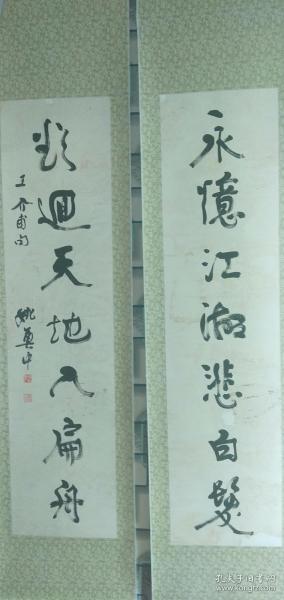 永憶江湖悲白髮
欲迴天地入扁舟
王介甫句
姚奠中
孔夫子旧书网